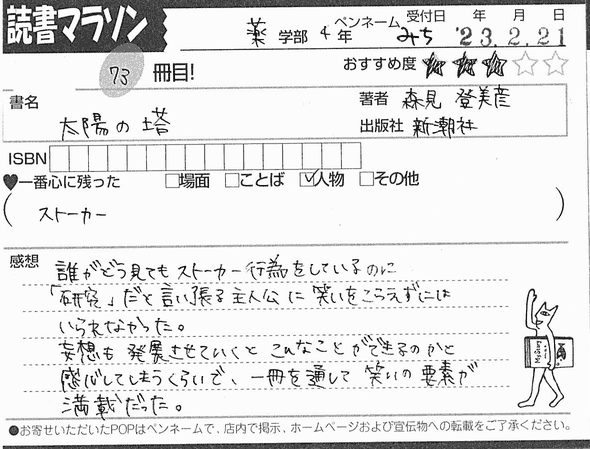 読書マラソン
薬 学部 4 年 ペンネーム みち 受付日 '23年 2月 21日
73 冊目!
おすすめ度 ★★★☆☆
書名 太陽の塔
著者 森見 登美彦
出版社 新潮社
ISBN
♥一番心に残った □場面 □ことば ☑人物 □その他
( ストーカー )
感想
誰がどう見てもストーカー行為をしているのに
「研究」だと言い張る主人公に笑いをこらえずには
いられなかった。
妄想も発展させていくとこんなことができるのかと
感心してしまうくらいで、一冊を通して笑いの要素が
満載だった。
●お寄せいただいたPOPはペンネームで、店内で掲示、ホームページおよび宣伝物への転載をご了承ください。